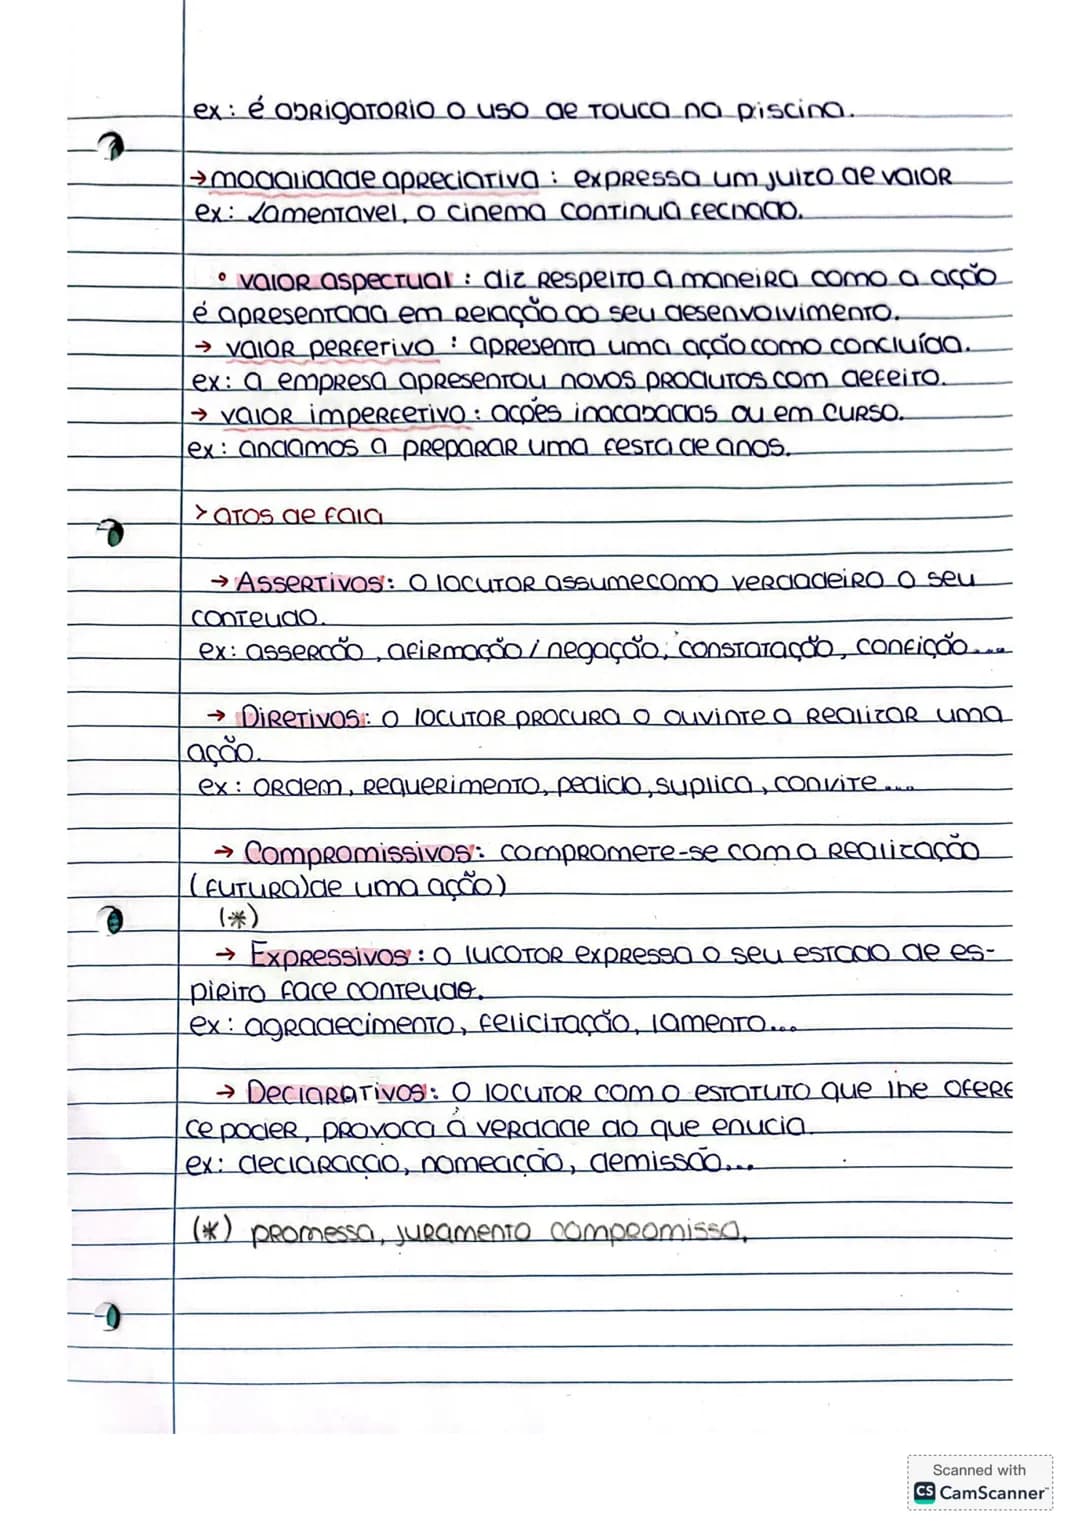 ex: é obrigatorio o uso de touca na piscina.
→ modalidade apreciativa: expressa um juizo de valor
ex: Lamentavel, o cinema continua fechado.
• valor aspectual: diz respeito a maneira como a acção
é apresentada em relação ao seu desenvolvimento.
→ valor perfetivo: apresenta uma ação como concluída.
ex: a empresa apresentou novos produtos com defeito.
→ valor imperfetivo: acões inacabadas ou em curso.
ex: andamos a preparar uma festa de anos.
> atos de fala
→ Assertivos: o locutor assume como verdadeiro o seu
conteudo.
ex: assercão, afirmação / negação, constatação, confição...
→ Diretivos: o locutor procura o ouvinte a realizar uma
ação.
ex: ordem, requerimento, pedido, suplica, convite...
→ Compromissivos: compromete-se com a realização
(futura) de uma ação)
(*)
→ Expressivos: o lucotor expressa o seu estado de es-
pirito face conteudo.
ex: agradecimento, felicitação, lamento...
→ Declarativos: o locutor com o estatuto que lhe ofere
ce poder, provoca á verdade do que enucia.
ex: declaracção, nomeacção, demissão...
(*) promessa, juramento compromisso.
Scanned with
CS CamScanner